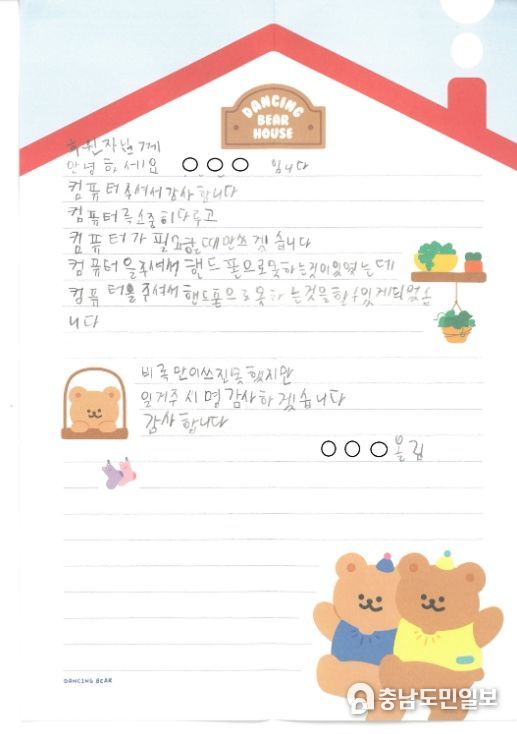 DANCING
BEAR
HOUSE
후원자님께
안녕하세요 ○○○ 입니다
컴퓨터주셔서감사합니다
컴퓨터를소중히다루고
컴퓨터가 필요할때만쓰겟습니다
컴퓨터을주셔서 핸드폰으로못하는것이있었는데
컴퓨터을주셔서핸드폰으로못하는것을할수있게되었습
니다
비록만이쓰진못했지만
일거주시명감사하겠습니다
감사합니다
○○○올림
DANCING BEAR
충남도민일보